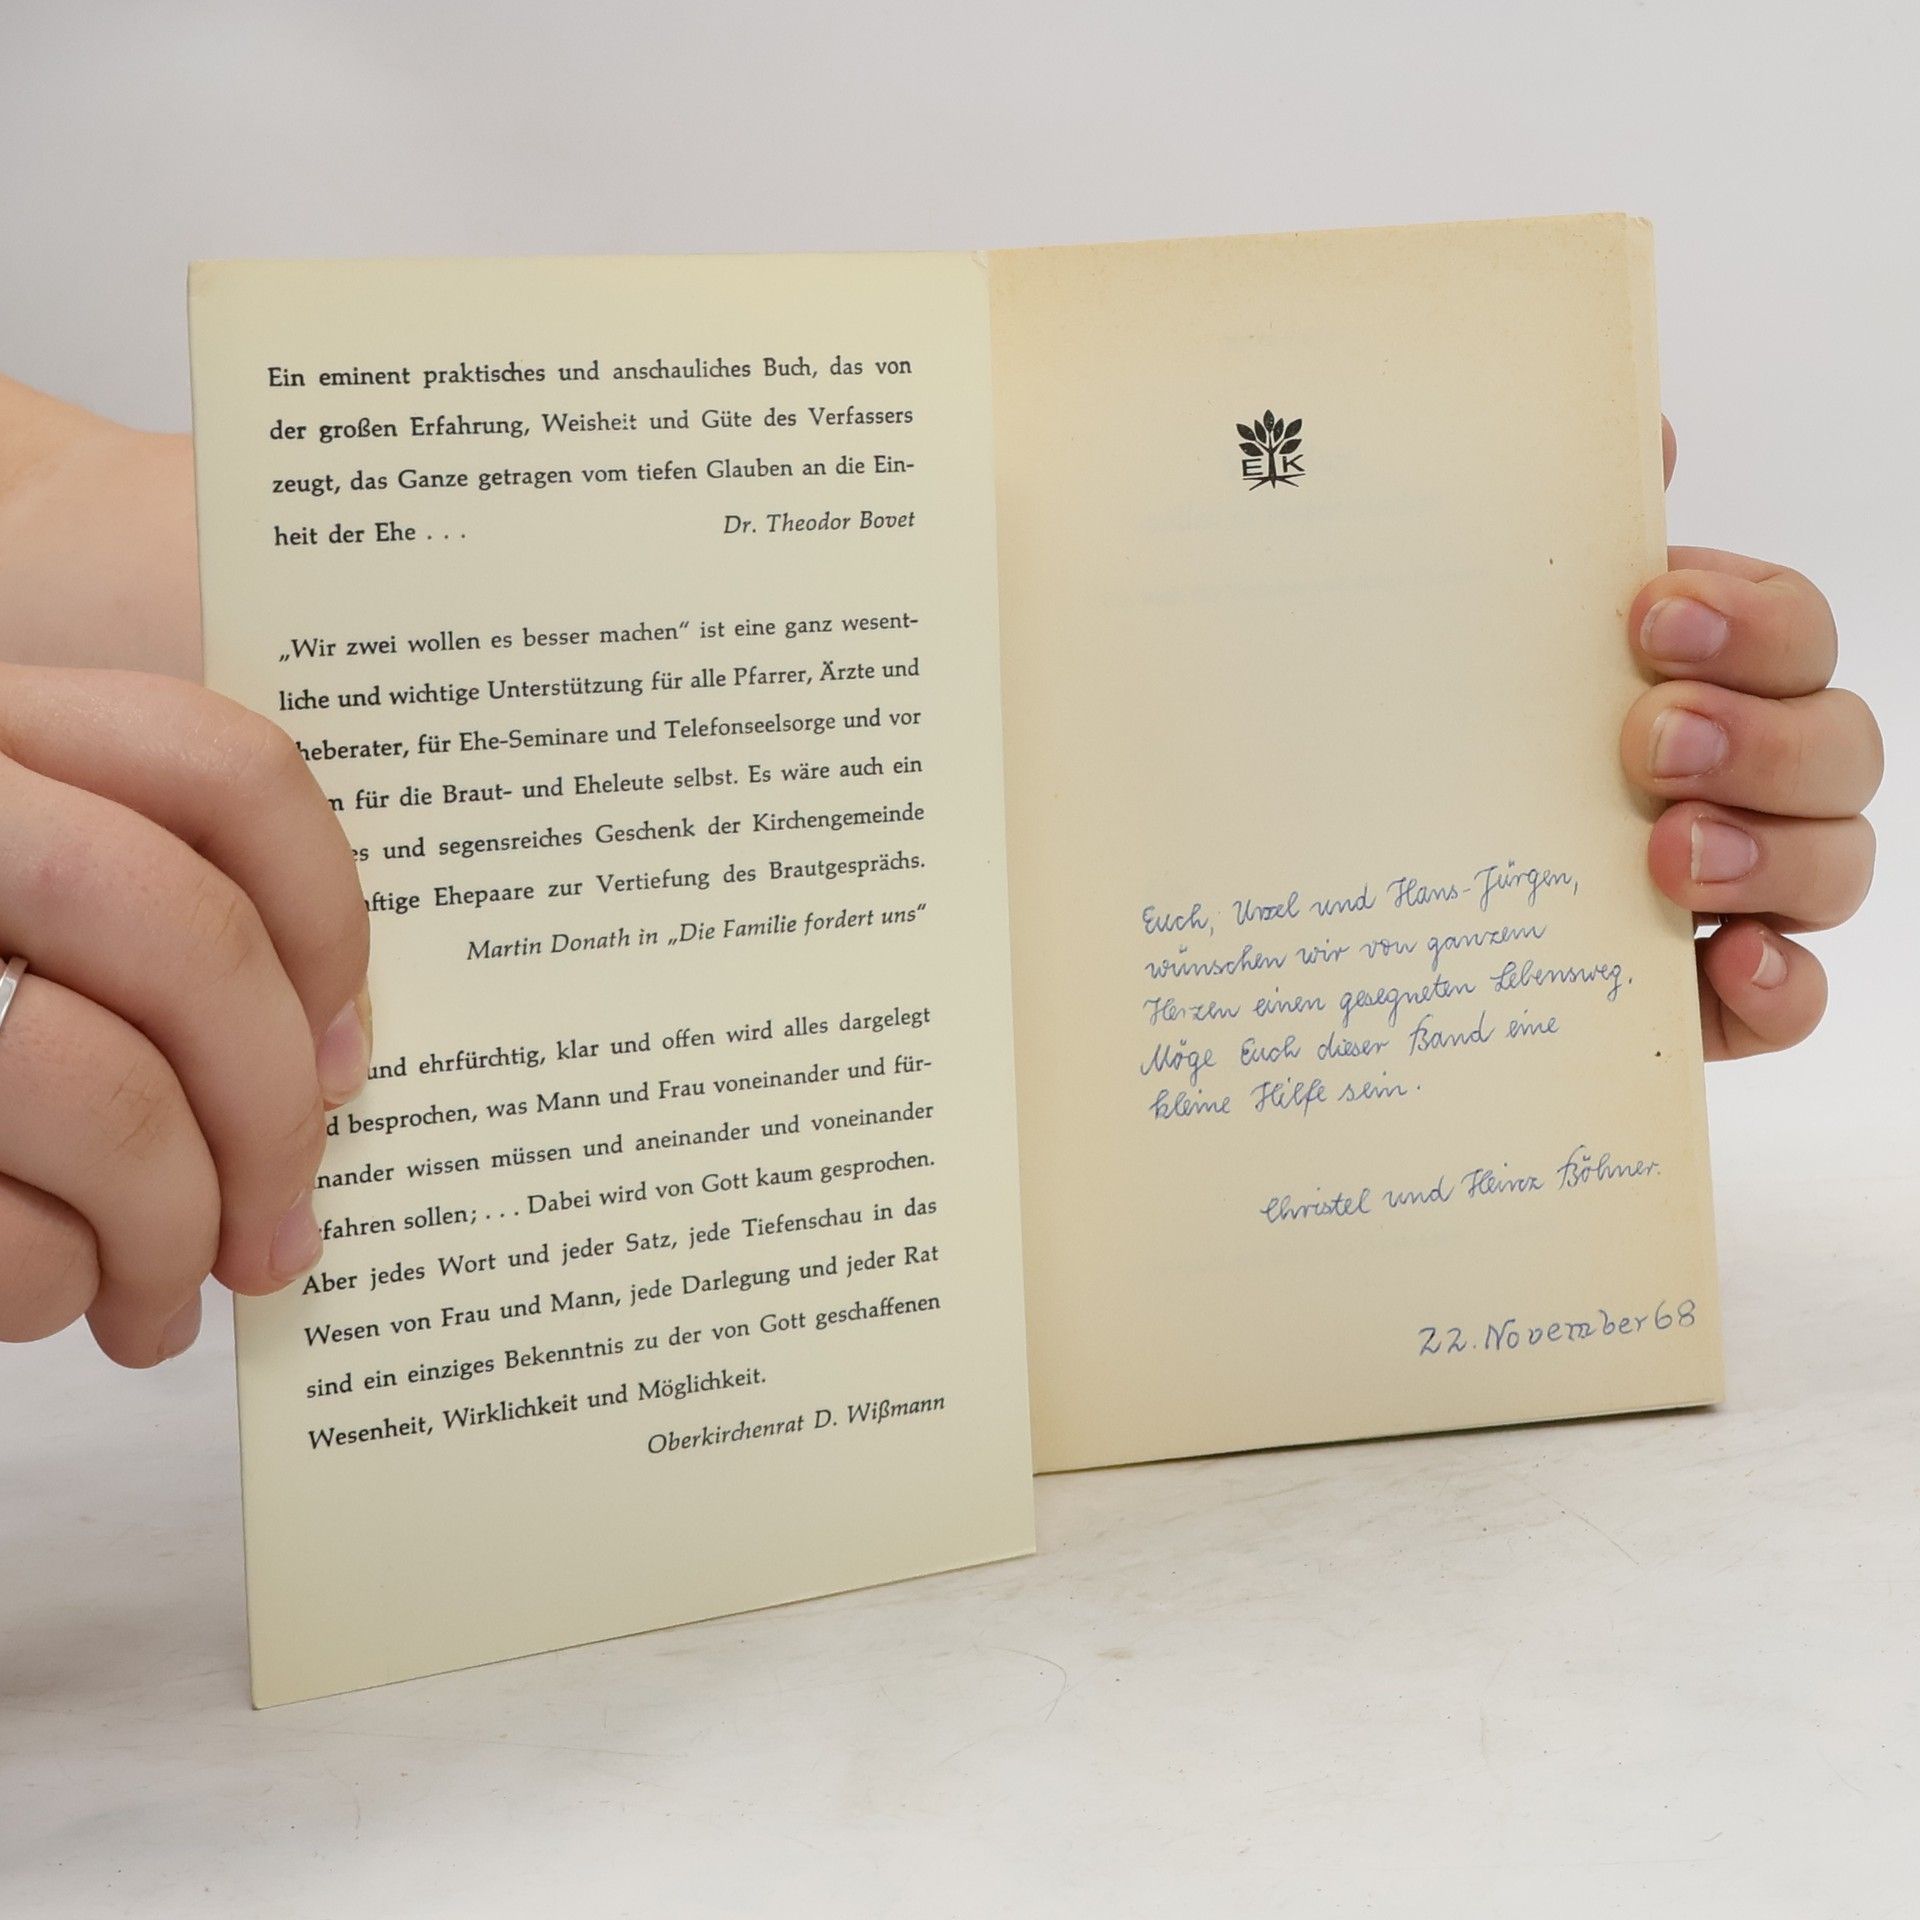 Ein eminent praktisches und anschauliches Buch, das von
der großen Erfahrung, Weisheit und Güte des Verfassers
zeugt, das Ganze getragen vom tiefen Glauben an die Ein-
heit der Ehe . . . Dr. Theodor Bovet
„Wir zwei wollen es besser machen“ ist eine ganz wesent-
liche und wichtige Unterstützung für alle Pfarrer, Ärzte und
heberater, für Ehe-Seminare und Telefonseelsorge und vor
m für die Braut- und Eheleute selbst. Es wäre auch ein
es und segensreiches Geschenk der Kirchengemeinde
ftige Ehepaare zur Vertiefung des Brautgesprächs.
Martin Donath in „Die Familie fordert uns“
und ehrfürchtig, klar und offen wird alles dargelegt
d besprochen, was Mann und Frau voneinander und für-
nander wissen müssen und aneinander und voneinander
fahren sollen; . . . Dabei wird von Gott kaum gesprochen.
Aber jedes Wort und jeder Satz, jede Tiefenschau in das
Wesen von Frau und Mann, jede Darlegung und jeder Rat
sind ein einziges Bekenntnis zu der von Gott geschaffenen
Wesenheit, Wirklichkeit und Möglichkeit.
Oberkirchenrat D. Wißmann
E K
Euch, Ursel und Hans-Jürgen,
wünschen wir von ganzem
Herzen einen gesegneten Lebensweg.
Möge Euch dieser Band eine
kleine Hilfe sein.
Christel und Heinz Böhner.
22. November 68